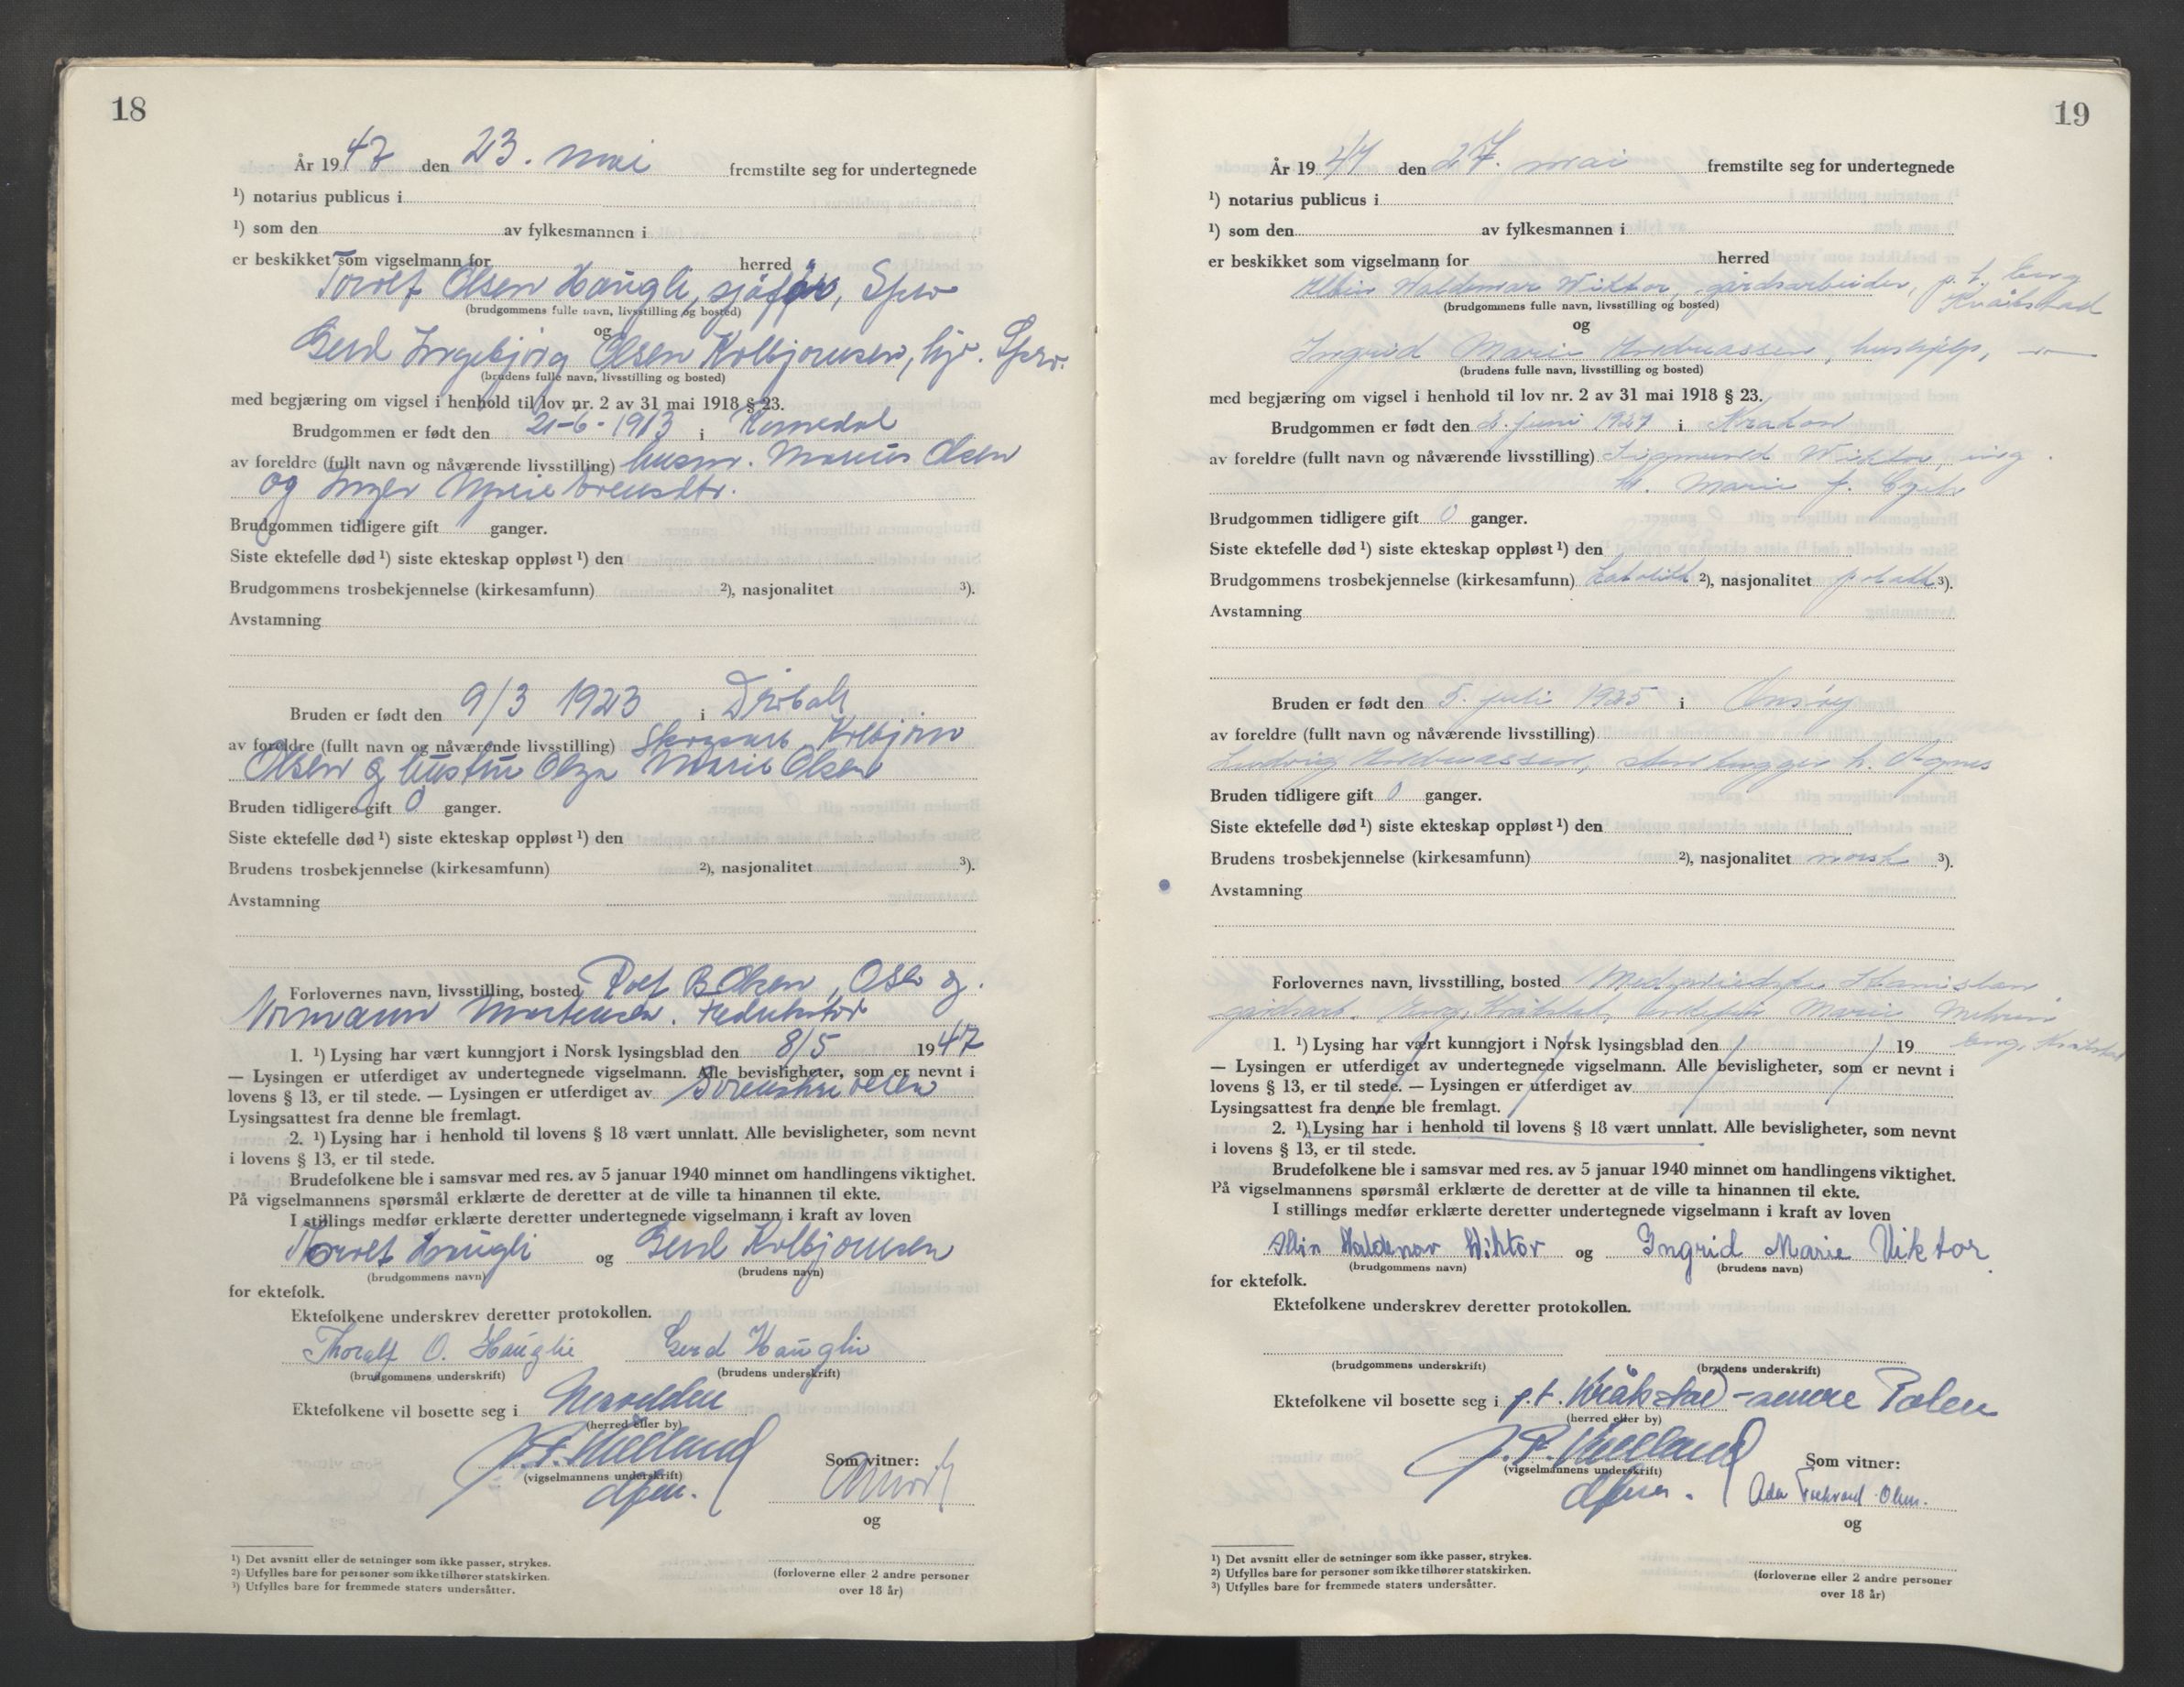 18
År 1947 den 23. mai fremstilte seg for undertegnede
¹) notarius publicus i
¹) som den av fylkesmannen i
er beskikket som vigselmann for herred
Torolf Olsen Haugli, sjåfør,
(brudgommens fulle navn, livsstilling og bosted)
og
Gerd Ingebjørg Olsen Kolbjørnsen,
(brudens fulle navn, livsstilling og bosted)
med begjæring om vigsel i henhold til lov nr. 2 av 31 mai 1918 § 23.
Brudgommen er født den 21-6-1913 i
av foreldre (fullt navn og nåværende livsstilling) Marius Olsen
og Inger Marie
Brudgommen tidligere gift ganger.
Siste ektefelle død ¹) siste ekteskap oppløst ¹) den
Brudgommens trosbekjennelse (kirkesamfunn) ²), nasjonalitet ³).
Avstamning
Bruden er født den 9/3 1923 i Drøbak
av foreldre (fullt navn og nåværende livsstilling) Kolbjørn
Olsen og hustru Olga Marie Olsen
Bruden tidligere gift 0 ganger.
Siste ektefelle død ¹) siste ekteskap oppløst ¹) den
Brudens trosbekjennelse (kirkesamfunn) ²), nasjonalitet ³).
Avstamning
Forlovernes navn, livsstilling, bosted Rolf B Olsen, Oslo og
Normann Mortensen.
1. ¹) Lysing har vært kunngjort i Norsk lysingsblad den 8/5 1947
— Lysingen er utferdiget av undertegnede vigselmann. Alle bevisligheter, som er nevnt i
lovens § 13, er til stede. — Lysingen er utferdiget av Sorenskriveren
Lysingsattest fra denne ble fremlagt.
2. ¹) Lysing har i henhold til lovens § 18 vært unnlatt. Alle bevisligheter, som nevnt
i lovens § 13, er til stede.
Brudefolkene ble i samsvar med res. av 5 januar 1940 minnet om handlingens viktighet.
På vigselmannens spørsmål erklærte de deretter at de ville ta hinannen til ekte.
I stillings medfør erklærte deretter undertegnede vigselmann i kraft av loven
Torolf Haugli og Gerd Kolbjørnsen
(brudgommens navn) (brudens navn)
for ektefolk.
Ektefolkene underskrev deretter protokollen.
Thoralf O. Hauglie Gerd Hauglie
(brudgommens underskrift) (brudens underskrift)
Ektefolkene vil bosette seg i Nesodden
(herred eller by)
J. P. Kielland
(vigselmannens underskrift)
dfm.
Som vitner:
og
(forloverne eller 2 andre personer
over 18 år)
¹) Det avsnitt eller de setninger som ikke passer, strykes.
²) Utfylles bare for personer som ikke tilhører statskirken.
³) Utfylles bare for fremmede staters undersåtter.
19
År 1947 den 27. mai fremstilte seg for undertegnede
¹) notarius publicus i
¹) som den av fylkesmannen i
er beskikket som vigselmann for herred
Albin Waldemar Wiktor, gårdsarbeider, p. t. Eng
Kråkstad
(brudgommens fulle navn, livsstilling og bosted)
og
Ingrid Marie Andreassen, hushjelp,
(brudens fulle navn, livsstilling og bosted)
med begjæring om vigsel i henhold til lov nr. 2 av 31 mai 1918 § 23.
Brudgommen er født den 2. juni 1927 i Krakow
av foreldre (fullt navn og nåværende livsstilling) Sigmund Wiktor, ing
h. Marie f.
Brudgommen tidligere gift 0 ganger.
Siste ektefelle død ¹) siste ekteskap oppløst ¹) den
Brudgommens trosbekjennelse (kirkesamfunn) katolikk ²), nasjonalitet polakk ³).
Avstamning
Bruden er født den 5. juli 1925 i Onsøy
av foreldre (fullt navn og nåværende livsstilling)
Ludvig Andreassen, stenhugger h. Agnes
Bruden tidligere gift 0 ganger.
Siste ektefelle død ¹) siste ekteskap oppløst ¹) den
Brudens trosbekjennelse (kirkesamfunn) ²), nasjonalitet norsk ³).
Avstamning
Forlovernes navn, livsstilling, bosted Stanislav
gårdsarb. Eng, Kråkstad, Marie
Eng, Kråkstad
1. ¹) Lysing har vært kunngjort i Norsk lysingsblad den 19
— Lysingen er utferdiget av undertegnede vigselmann. Alle bevisligheter, som er nevnt i
lovens § 13, er til stede. — Lysingen er utferdiget av
Lysingsattest fra denne ble fremlagt.
2. ¹) Lysing har i henhold til lovens § 18 vært unnlatt. Alle bevisligheter, som nevnt
i lovens § 13, er til stede.
Brudefolkene ble i samsvar med res. av 5 januar 1940 minnet om handlingens viktighet.
På vigselmannens spørsmål erklærte de deretter at de ville ta hinannen til ekte.
I stillings medfør erklærte deretter undertegnede vigselmann i kraft av loven
Albin Waldemar Wiktor og Ingrid Marie Viktor
(brudgommens navn) (brudens navn)
for ektefolk.
Ektefolkene underskrev deretter protokollen.
(brudgommens underskrift) (brudens underskrift)
Ektefolkene vil bosette seg i p.t. Kråkstad - senere Polen
(herred eller by)
J. P. Kielland
(vigselmannens underskrift)
dfm.
Som vitner:
og
(forloverne eller 2 andre personer
over 18 år)
¹) Det avsnitt eller de setninger som ikke passer, strykes.
²) Utfylles bare for personer som ikke tilhører statskirken.
³) Utfylles bare for fremmede staters undersåtter.